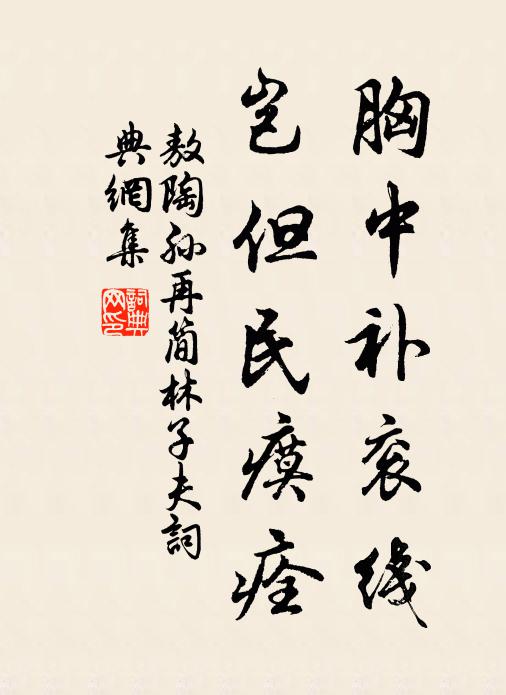 胸中补衮线
岂但民瘼痊
敖陶孙再简林子夫詞
典網集
詞典網印